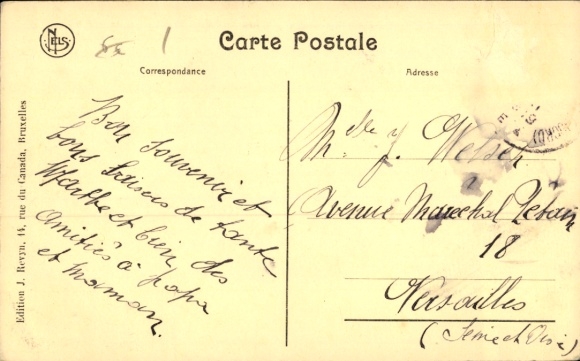 NELS
Carte Postale
Correspondance
Adresse
Bon souvenir et
bons baisers de tante
Marthe et bien des
amitiés à papa
et maman.
Melle J.
Avenue Marechal Pétain
18
Versailles
(Seine et Oise)
Edition J. Revyn, 14, rue du Canada, Bruxelles